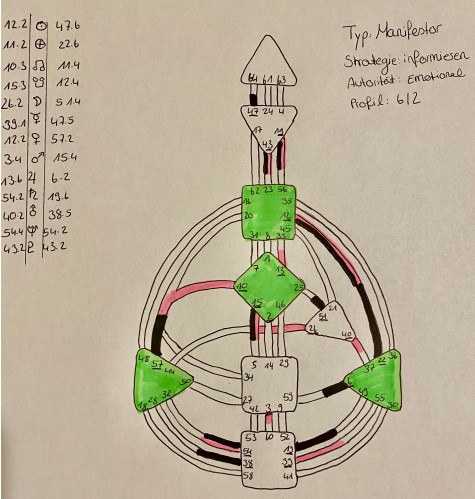 12.2 ☉ 47.6
11.2 ⊕ 22.6
10.3 ☊ 11.4
15.3 ☋ 12.4
26.2 ☽ 51.4
39.1 ☿ 47.5
12.2 ♀ 57.2
3.4 ♂ 15.4
13.6 ♃ 6.2
54.2 ♄ 19.6
40.2 ⛢ 38.5
54.4 ♆ 54.2
43.2 ♇ 43.2
Typ: Manifestor
Strategie: informieren
Autorität: Emotional
Profil: 6/2
64 61 63
47 24 4
17 11
43
62 23 56
16 35
20 12
45
31 8 33
1
7 13
10 25
15 46
2
21
51
26 40
48 57 44
50
18 28 32
5 14 29
34
27 59
42 3 9
36
22
37
6
49 55 30
53 60 52
54 19
38 39
58 41